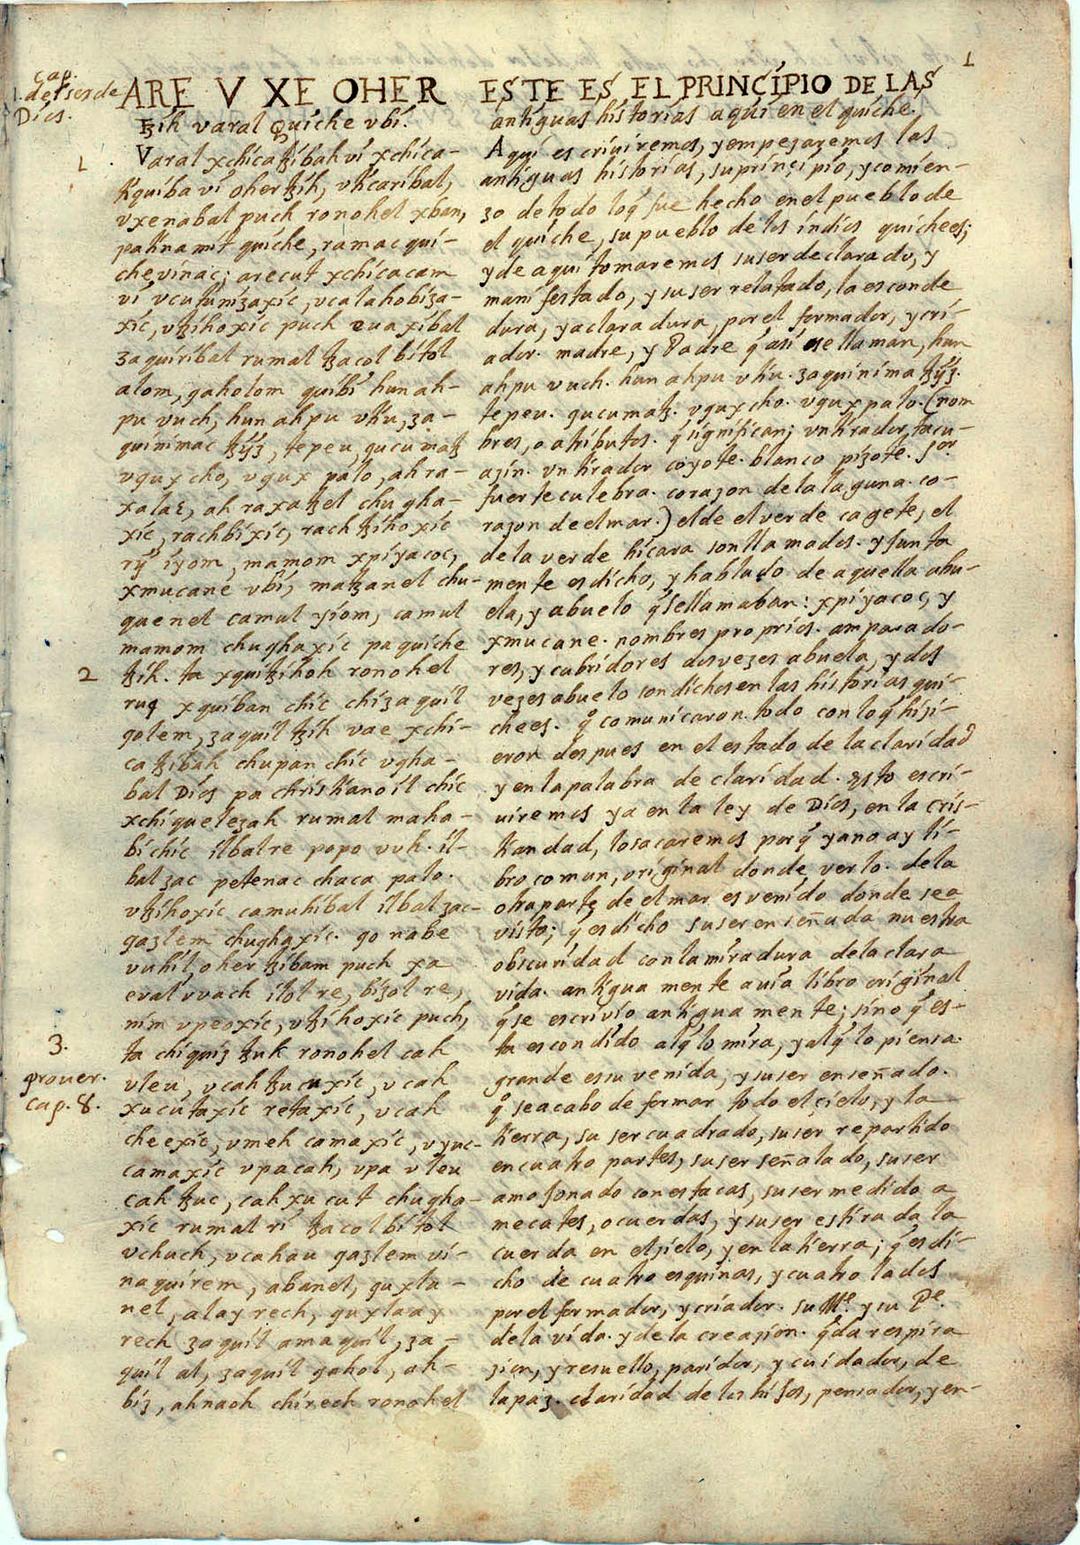 1
cap.
1. del ser de
Dios.
ARE V XE OHER
ꜩih varal Quiche vbi.
1.
Varal xchicaꜩibah vi xchica-
tiquiba vi oher ꜩih, vticaribal,
vxenabal puch ronohel xban,
pa tinamit quiche, ramac qui-
che vinac; arecut xchicacam
vi vcutunizaxic, vcalahobiza-
xic, vꜩihoxic puch euaxibal
zaquiribal rumal ꜩacol bitol
alom, qaholom quibi hun ah-
pu vuch, hun ahpu vtiu, za-
quinimac ꜩyz, tepeu, qucumaꜩ
vqux cho, vqux palo, ah ra-
xala, ah raxaꜩel chugha-
xic, rachbixic, rachꜩihoxic
ri iyom, mamom xpiyacoc,
xmucane vbi, maꜩanel chu-
quenel camul iyom, camul
mamom chughaxic pa quiche
2
ꜩih. ta xquiꜩihoh ronohel
ruq xquiban chic chi zaquil
qolem, zaquil ꜩih vae xchi-
caꜩibah chupan chic vgha-
bal Dios pa christianoil chic
xchiquelezah rumal maha-
bi chic ilbal re popo vuh. il-
bal zac petenac chaca palo.
vꜩihoxic camuhibal ilbal zac-
qazlem chughaxic. qo nabe
vuhil, oher ꜩibam puch xa
eval vvach ilol re, bizol re,
nim vpeoxic, vꜩihoxic puch,
3.
ta chiquiz ꜩuk ronohel cah
prouer.
cap. 8.
vleu, vcah ꜩucuxic, vcah
xucutaxic retaxic, vcah
cheexic, vmeh camaxic, vyuc-
camaxic vpacah, vpa vleu
cah ꜩuc, cah xucut chugha-
xic rumal ri ꜩacol bitol
vchuch, vcahau qazlem vi-
naquirem, abanel, quxla-
nel, alay rech, quxlaay
rech zaquil amaquil, za-
quil al, zaquil qahol, ah-
biz, ahnaoh chirech ronohel
ESTE ES EL PRINCIPIO DE LAS
antiguas historias aqui en el quiche.
Aqui escriuiremos, y empezaremos las
antiguas historias, su prinçipio, y comien-
zo de todo lo q̃ fue hecho en el pueblo de
el quiche, su pueblo de los indios quichees;
y de aqui tomaremos su ser declarado, y
manifestado, y su ser relatado, la esconde
dura, y aclaradura, por el formador, y cri-
ador. madre, y Padre q̃ asi se llaman, hun
ahpu vuch. hun ahpu vtiu. zaquinima ꜩyz.
tepeu. qucumaꜩ. vqux cho. vqux palo. (nom
bres, o atributos. q̃ significan; vn tirador tacu-
azin. vn tirador coyote. blanco pizote. sor
fuerte culebra. corazon de la laguna. co-
razon de el mar.) el de el verde cagete, el
de la verde hicara son llamados. y junta
mente es dicho, y hablado de aquella abu-
ela, y abuelo q̃ se llamaban: xpiyacoc, y
xmucane. nombres proprios. amparado-
res, y cubridores dos vezes abuela, y dos
vezes abuelo son dichos en las historias qui-
chees. q̃ comunicaron todo con lo q̃ hizi-
eron despues en el estado de la claridad
y en la palabra de claridad. Esto escri-
uiremos ya en la ley de Dios, en la cris-
tiandad, lo sacaremos porq̃ ya no ay li-
bro comun, original donde verlo. de la
otra parte de el mar es venido donde sea
visto; q̃ es dicho su ser enseñada nuestra
obscuridad con la miradura de la clara
vida. antigua mente auia libro original
q̃ se escrivio antigua mente; sino q̃ es-
ta escondido al q̃ lo mira, y al q̃ lo piensa.
grande es su venida, y su ser enseñado.
q̃ se acabo de formar todo el çielo, y la
tierra, su ser cuadrado, su ser repartido
en cuatro partes, su ser señalado, su ser
amojonado con estacas, su ser medido a
mecates, o cuerdas, y su ser estirada la
cuerda en el çielo, y en la tierra; q̃ es di-
cho de cuatro esquinas, y cuatro lados
por el formador, y criador. su Me. y su Pe.
de la vida. y de la creazion. q̃ da respira
zion, y resuello, paridor, y cuidador, de
la paz. claridad de los hijos, pensador, y en-